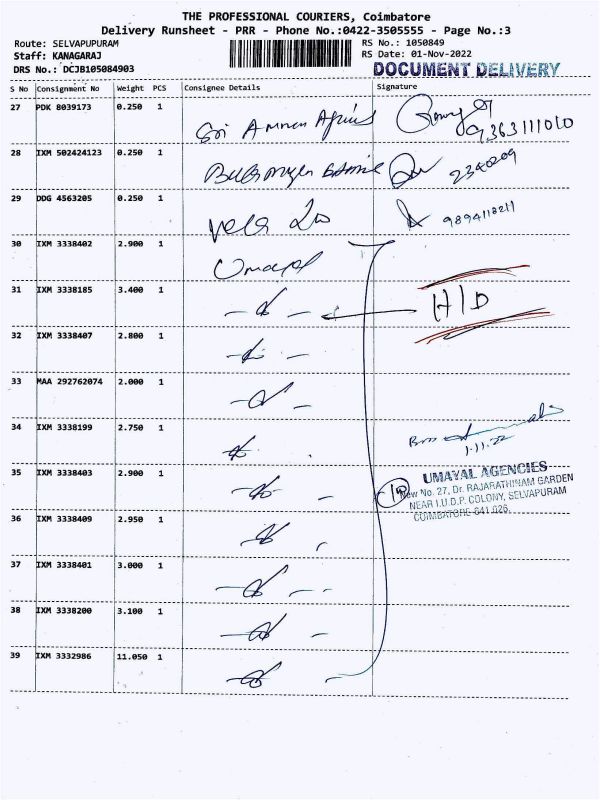 THE PROFESSIONAL COURIERS, Coimbatore
Delivery Runsheet - PRR - Phone No.:0422-3505555 - Page No.:3
Route: SELVAPUPURAM
Staff: KANAGARAJ
DRS No.: DCJB105084903
RS No.: 1050849
RS Date: 01-Nov-2022
DOCUMENT DELIVERY
S No Consignment No Weight PCS Consignee Details Signature
27 PDK 8039173 0.250 1 Sri Amman
9363111010
28 IXM 502424123 0.250 1
2340209
29 DDG 4563205 0.250 1
9894118211
30 IXM 3338402 2.900 1 Umayal
31 IXM 3338185 3.400 1 H/D
32 IXM 3338407 2.800 1
33 MAA 292762074 2.000 1
34 IXM 3338199 2.750 1
1.11.22
35 IXM 3338403 2.900 1
10
UMAYAL AGENCIES
New No. 27, Dr. RAJARATHINAM GARDEN
NEAR I.U.D.P. COLONY, SELVAPURAM
COIMBATORE-641 026.
36 IXM 3338409 2.950 1
37 IXM 3338401 3.000 1
38 IXM 3338200 3.100 1
39 IXM 3332986 11.050 1